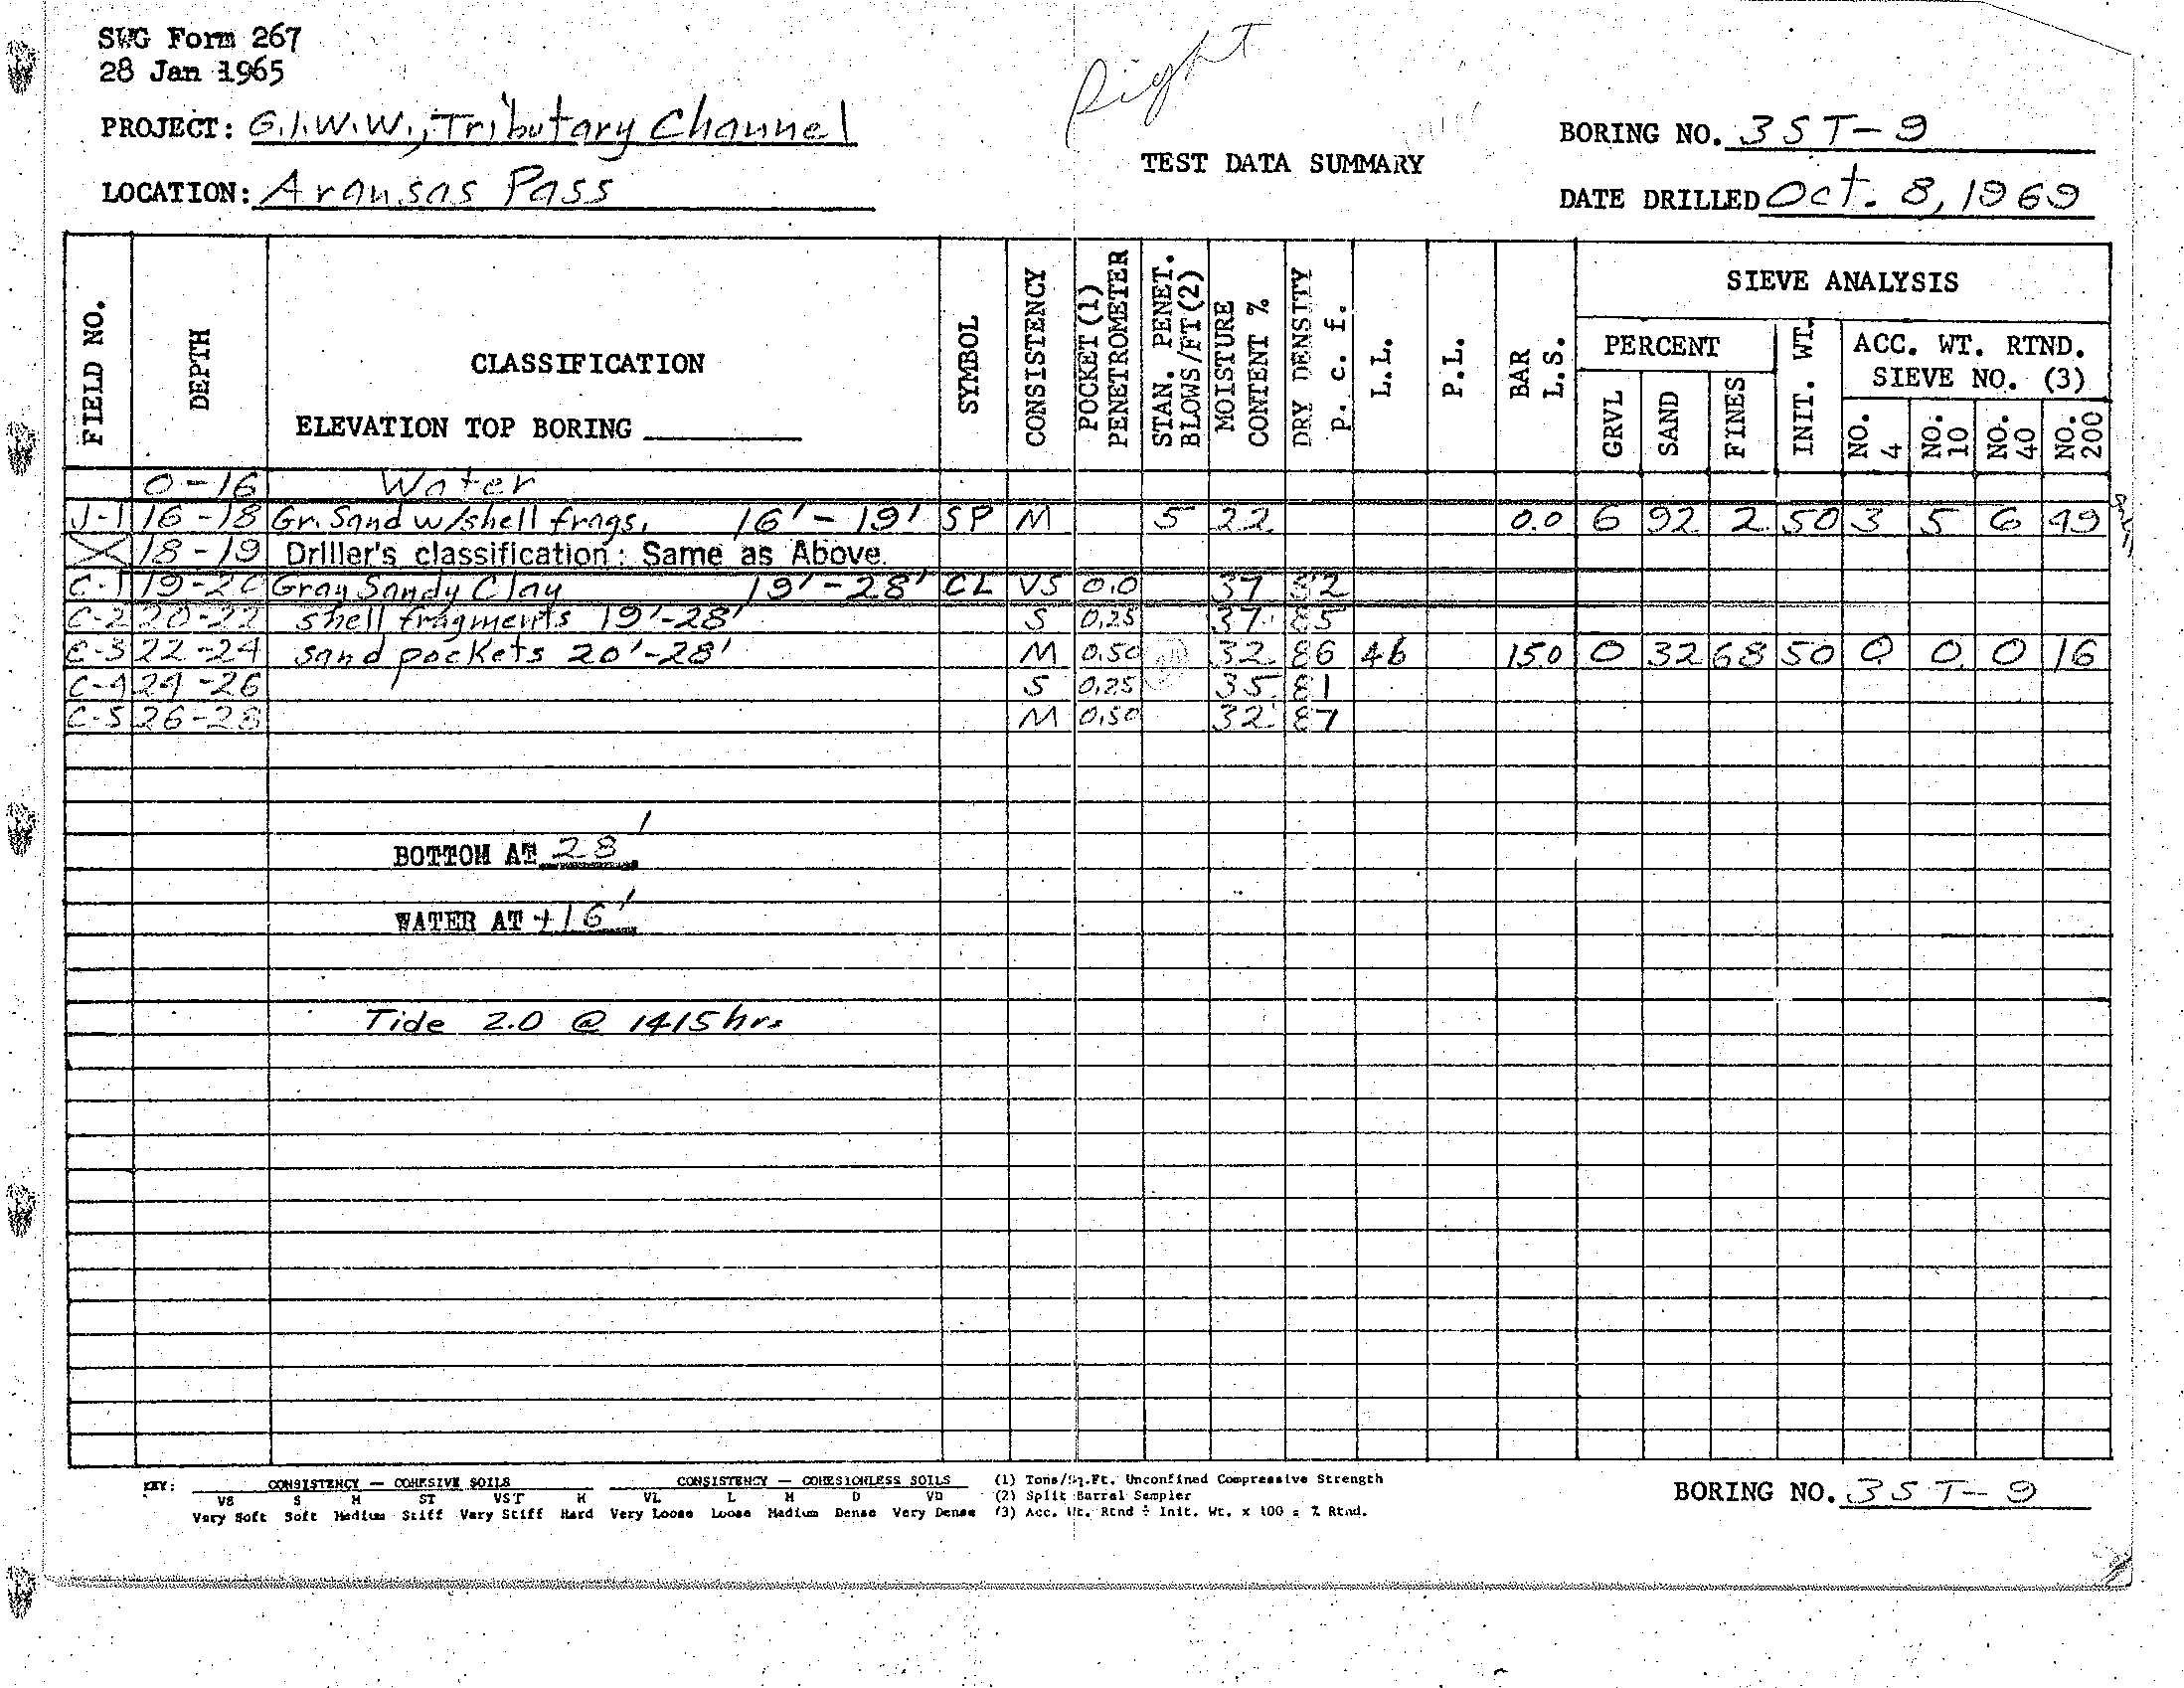 SWG Form 267
28 Jan 1965
Right
PROJECT: G.I.W.W., Tributary Channel
BORING NO. 3ST-9
TEST DATA SUMMARY
LOCATION: Aransas Pass
DATE DRILLED Oct. 8, 1969
FIELD NO. DEPTH CLASSIFICATION SYMBOL CONSISTENCY POCKET (1) PENETROMETER STAN. PENET. BLOWS/FT (2) MOISTURE CONTENT % DRY DENSITY p. c. f. L.L. P.L. BAR L.S. SIEVE ANALYSIS
PERCENT INIT. WT. ACC. WT. RTND. SIEVE NO. (3)
GRVL SAND FINES NO. 4 NO. 10 NO. 40 NO. 200
ELEVATION TOP BORING
0-16 Water
J-1 16-18 Gr. Sand w/shell frags. 16'-19' SP M 5 22 0.0 6 92 2 50 3 5 6 49
18-19 Driller's classification: Same as Above.
C-1 19-20 Gray Sandy Clay 19'-28' CL VS 0.0 37 82
C-2 20-22 shell fragments 19'-28' S 0.25 37 85
C-3 22-24 sand pockets 20'-28' M 0.50 32 86 46 15.0 0 32 68 50 0 0 0 16
C-4 24-26 S 0.25 35 81
C-5 26-28 M 0.50 32 87
BOTTOM AT 28'
WATER AT +16'
Tide 2.0 @ 1415 hrs
KEY: CONSISTENCY — COHESIVE SOILS CONSISTENCY — COHESIONLESS SOILS (1) Tons/Sq.Ft. Unconfined Compressive Strength
VS S M ST VST H VL L M D VD (2) Split Barrel Sampler
Very Soft Soft Medium Stiff Very Stiff Hard Very Loose Loose Medium Dense Very Dense (3) Acc. Wt. Rtnd ÷ Init. Wt. x 100 = % Rtnd.
BORING NO. 3ST-9